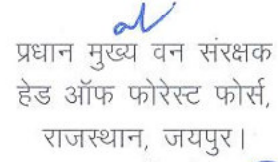 प्रधान मुख्य वन संरक्षक
हेड ऑफ फोरेस्ट फोर्स,
राजस्थान, जयपुर।